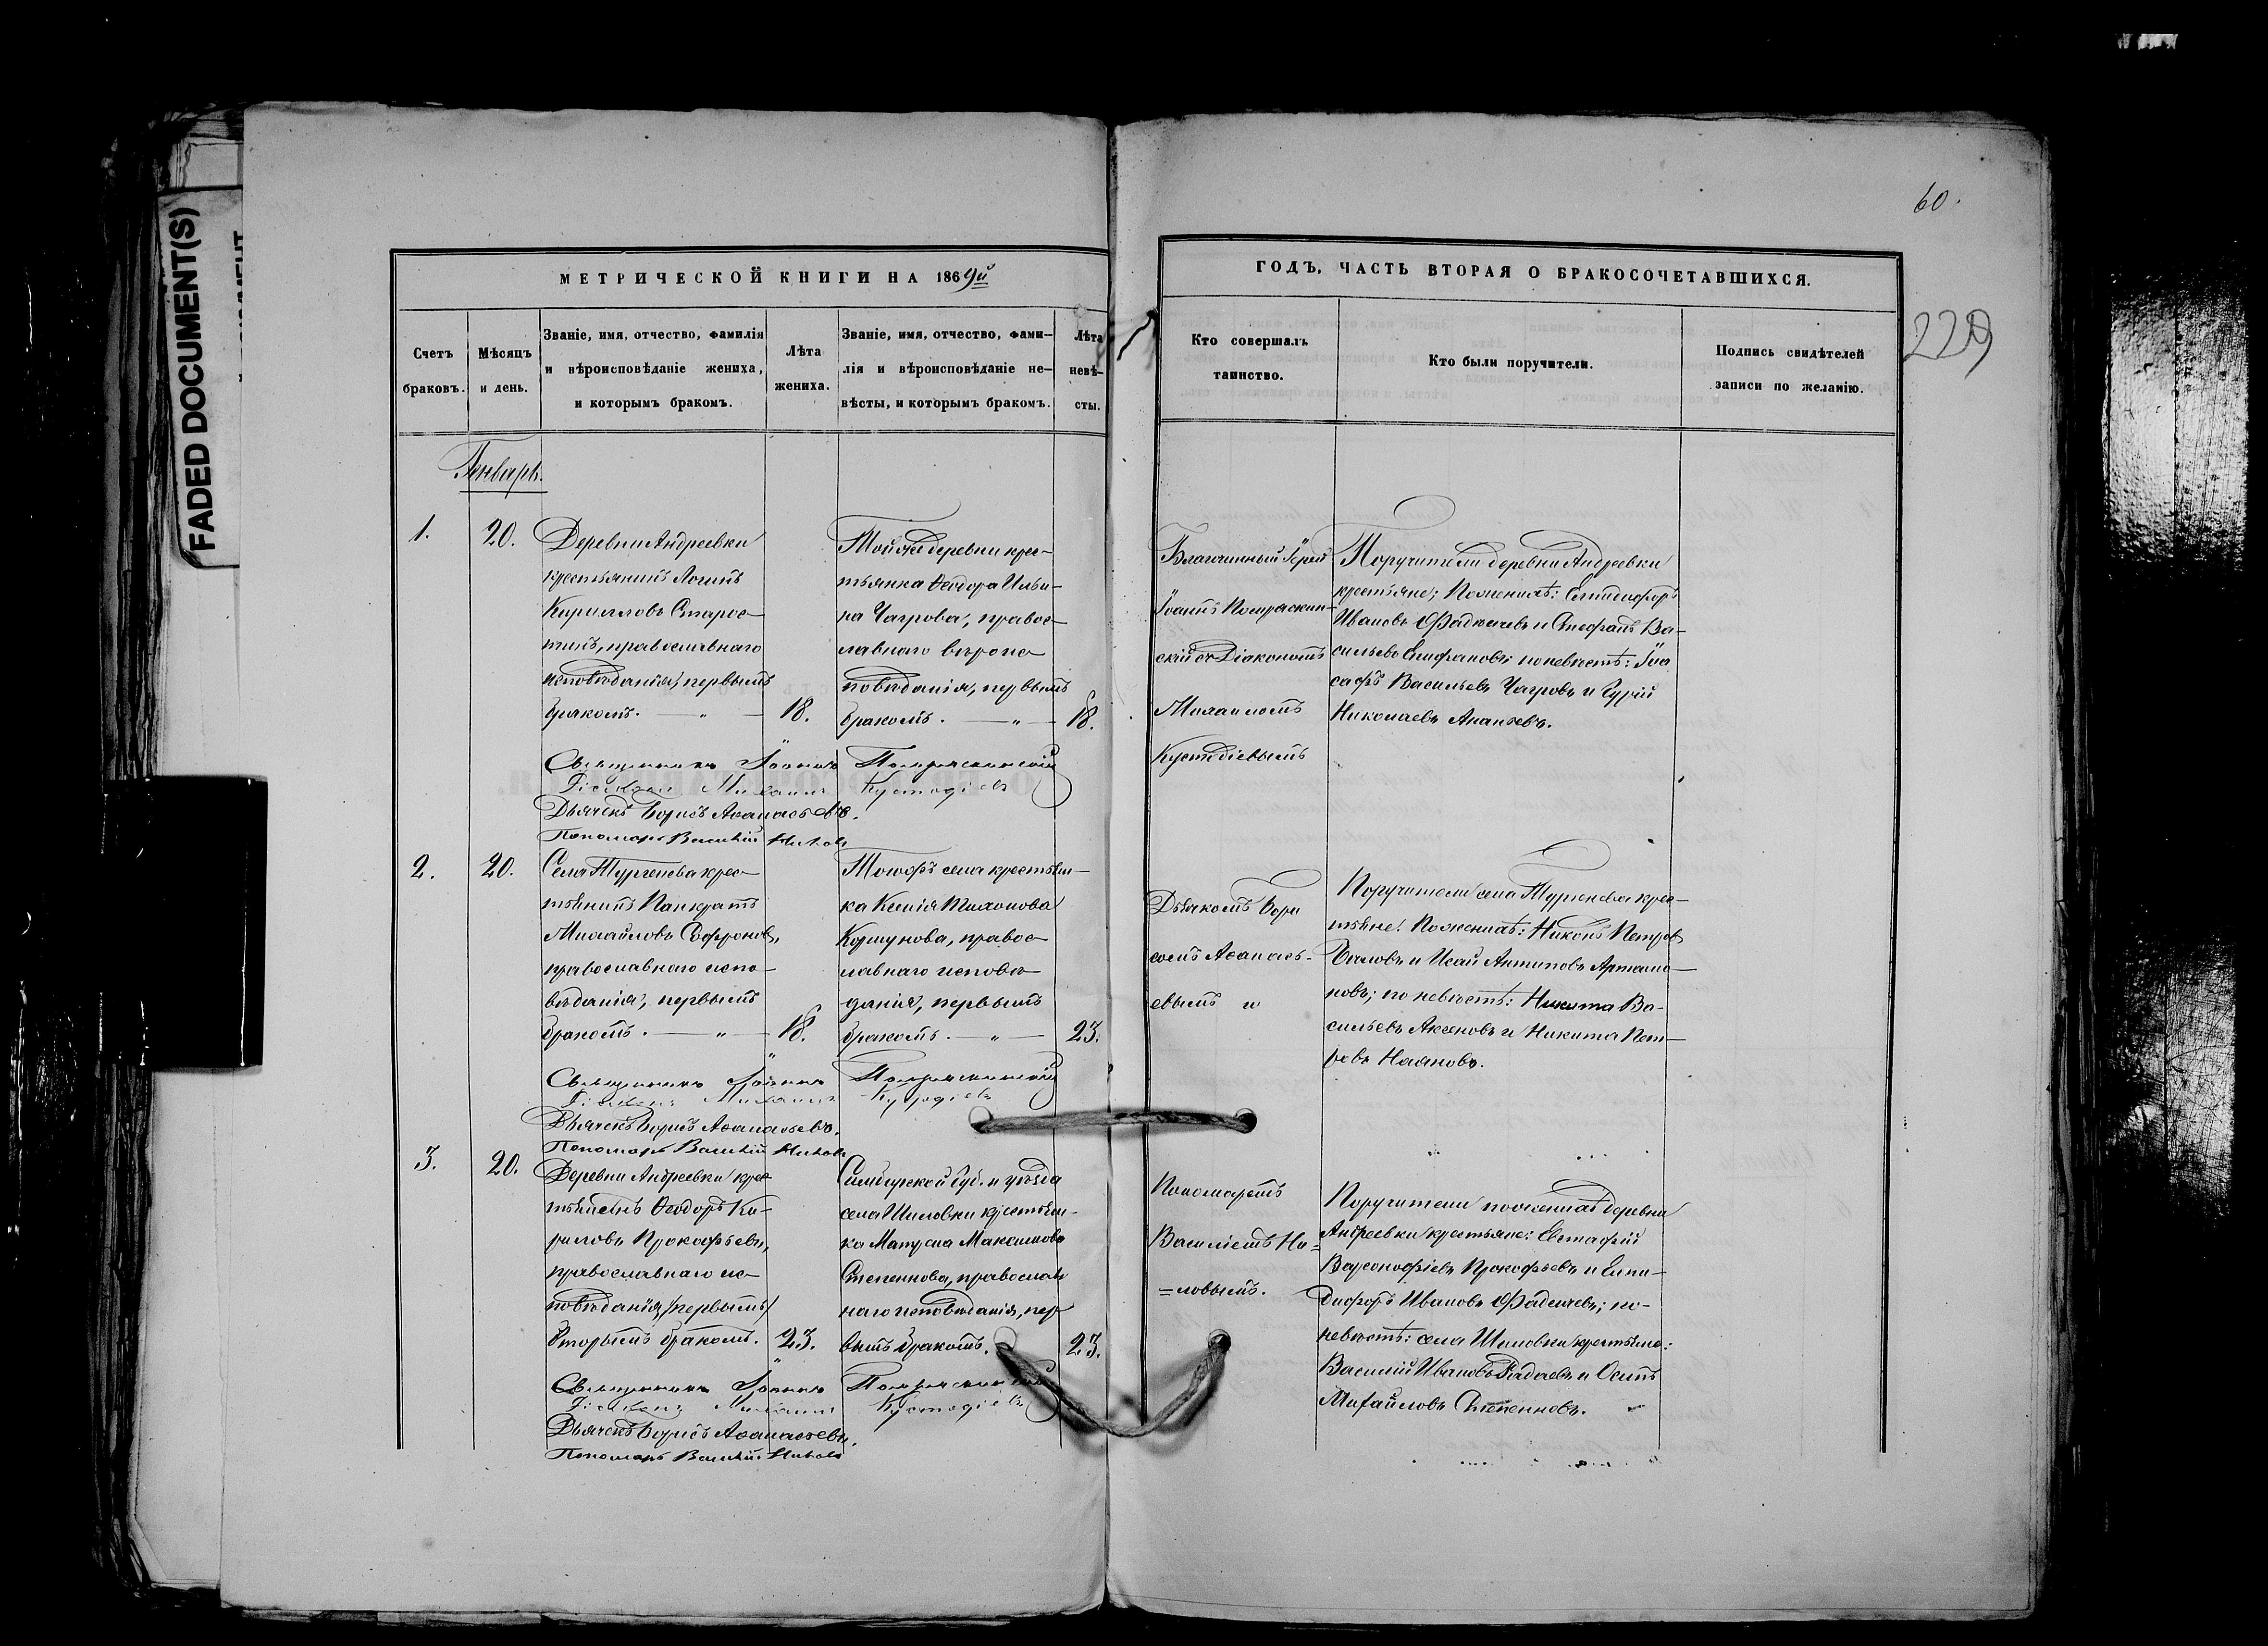 FADED DOCUMENT(S)
60.
229
МЕТРИЧЕСКОЙ КНИГИ НА 1869й
ГОДЪ, ЧАСТЬ ВТОРАЯ О БРАКОСОЧЕТАВШИХСЯ.
Счетъ
браковъ.
Мѣсяцъ
и день.
Званіе, имя, отчество, фамилія
и вѣроисповѣданіе жениха,
и которымъ бракомъ.
Лѣта
жениха.
Званіе, имя, отчество, фами-
лія и вѣроисповѣданіе не-
вѣсты, и которымъ бракомъ.
Лѣта
невѣ-
сты.
Кто совершалъ
таинство.
Кто были поручители.
Подпись свидѣтелей
записи по желанію.
Генварь.
1.
20.
Деревни Андреевки
крестьянинъ Логинъ
Кирилловъ Старос-
тинъ, православнаго
исповѣданія, первымъ
бракомъ. — " —
18.
Той же деревни крес-
тьянка Ѳеодора Ильи-
на Чагрова, правос-
лавнаго вѣроис
повѣданія, первымъ
бракомъ. — " —
18.
Благочинный Іерей
Іоаннъ
скій съ Діакономъ
Михаиломъ
Кустодіевымъ
Поручители деревни Андреевки
крестьяне; По женихѣ: Елпидифоръ
Ивановъ Фадѣичевъ и Стефанъ Ва-
сильевъ Епифановъ; по невѣстѣ: Іоа
сафъ Васильевъ Чагровъ и Гурій
Николаевъ Ананьевъ.
Священникъ Іоаннъ
Діаконъ Михаилъ Кустодіевъ
Дьячекъ Борисъ Аѳанасьевъ.
Пономарь Василій Ниловъ
2.
20.
Села Тургенева крес-
тьянинъ Панкратъ
Михайловъ Софроновъ,
православнаго испо-
вѣданія, первымъ
бракомъ. — " —
18.
Тогожъ села крестьян-
ка Ксенія Тихонова
Коршунова, правос-
лавнаго исповѣ-
данія, первымъ
бракомъ. — " —
23.
Дьячкомъ Бори
сомъ Аѳанась-
евымъ и
Поручители села Тургенева крес-
тьяне: По женихѣ: Никонъ Петровъ
Бѣловъ и Исай Антиповъ Артамо-
новъ; по невѣстѣ: Никита Ва-
сильевъ Аксеновъ и Никита Пет-
ровъ Наяновъ.
Священникъ Іоаннъ
Діаконъ Михаилъ Кустодіевъ
Дьячекъ Борисъ Аѳанасьевъ.
Пономарь Василій Ниловъ
3.
20.
Деревни Андреевки крес
тьянинъ Ѳеодоръ Ки-
риловъ Прокофьевъ,
православнаго ис-
повѣданія, (первымъ)
вторымъ бракомъ.
23.
Симбирской Губ. и уѣзда
села Шиловки крестьян-
ка Матрена Максимова
Степеннова, православ
наго исповѣданія, пер
вымъ бракомъ.
23.
Пономаремъ
Василіемъ Ни=
=ловымъ.
Поручители по женихѣ деревни
Андреевки крестьяне: Евстафій
Варсонофіевъ Прокофьевъ и Елпи-
дифоръ Ивановъ Фадеичевъ; по-
невѣстѣ: села Шиловки крестьяне:
Василій Ивановъ и Осипъ
Михайловъ Степенновъ.
Священникъ Іоаннъ
Діаконъ Михаилъ Кустодіевъ
Дьячекъ Борисъ Аѳанасьевъ.
Пономарь Василій Ниловъ